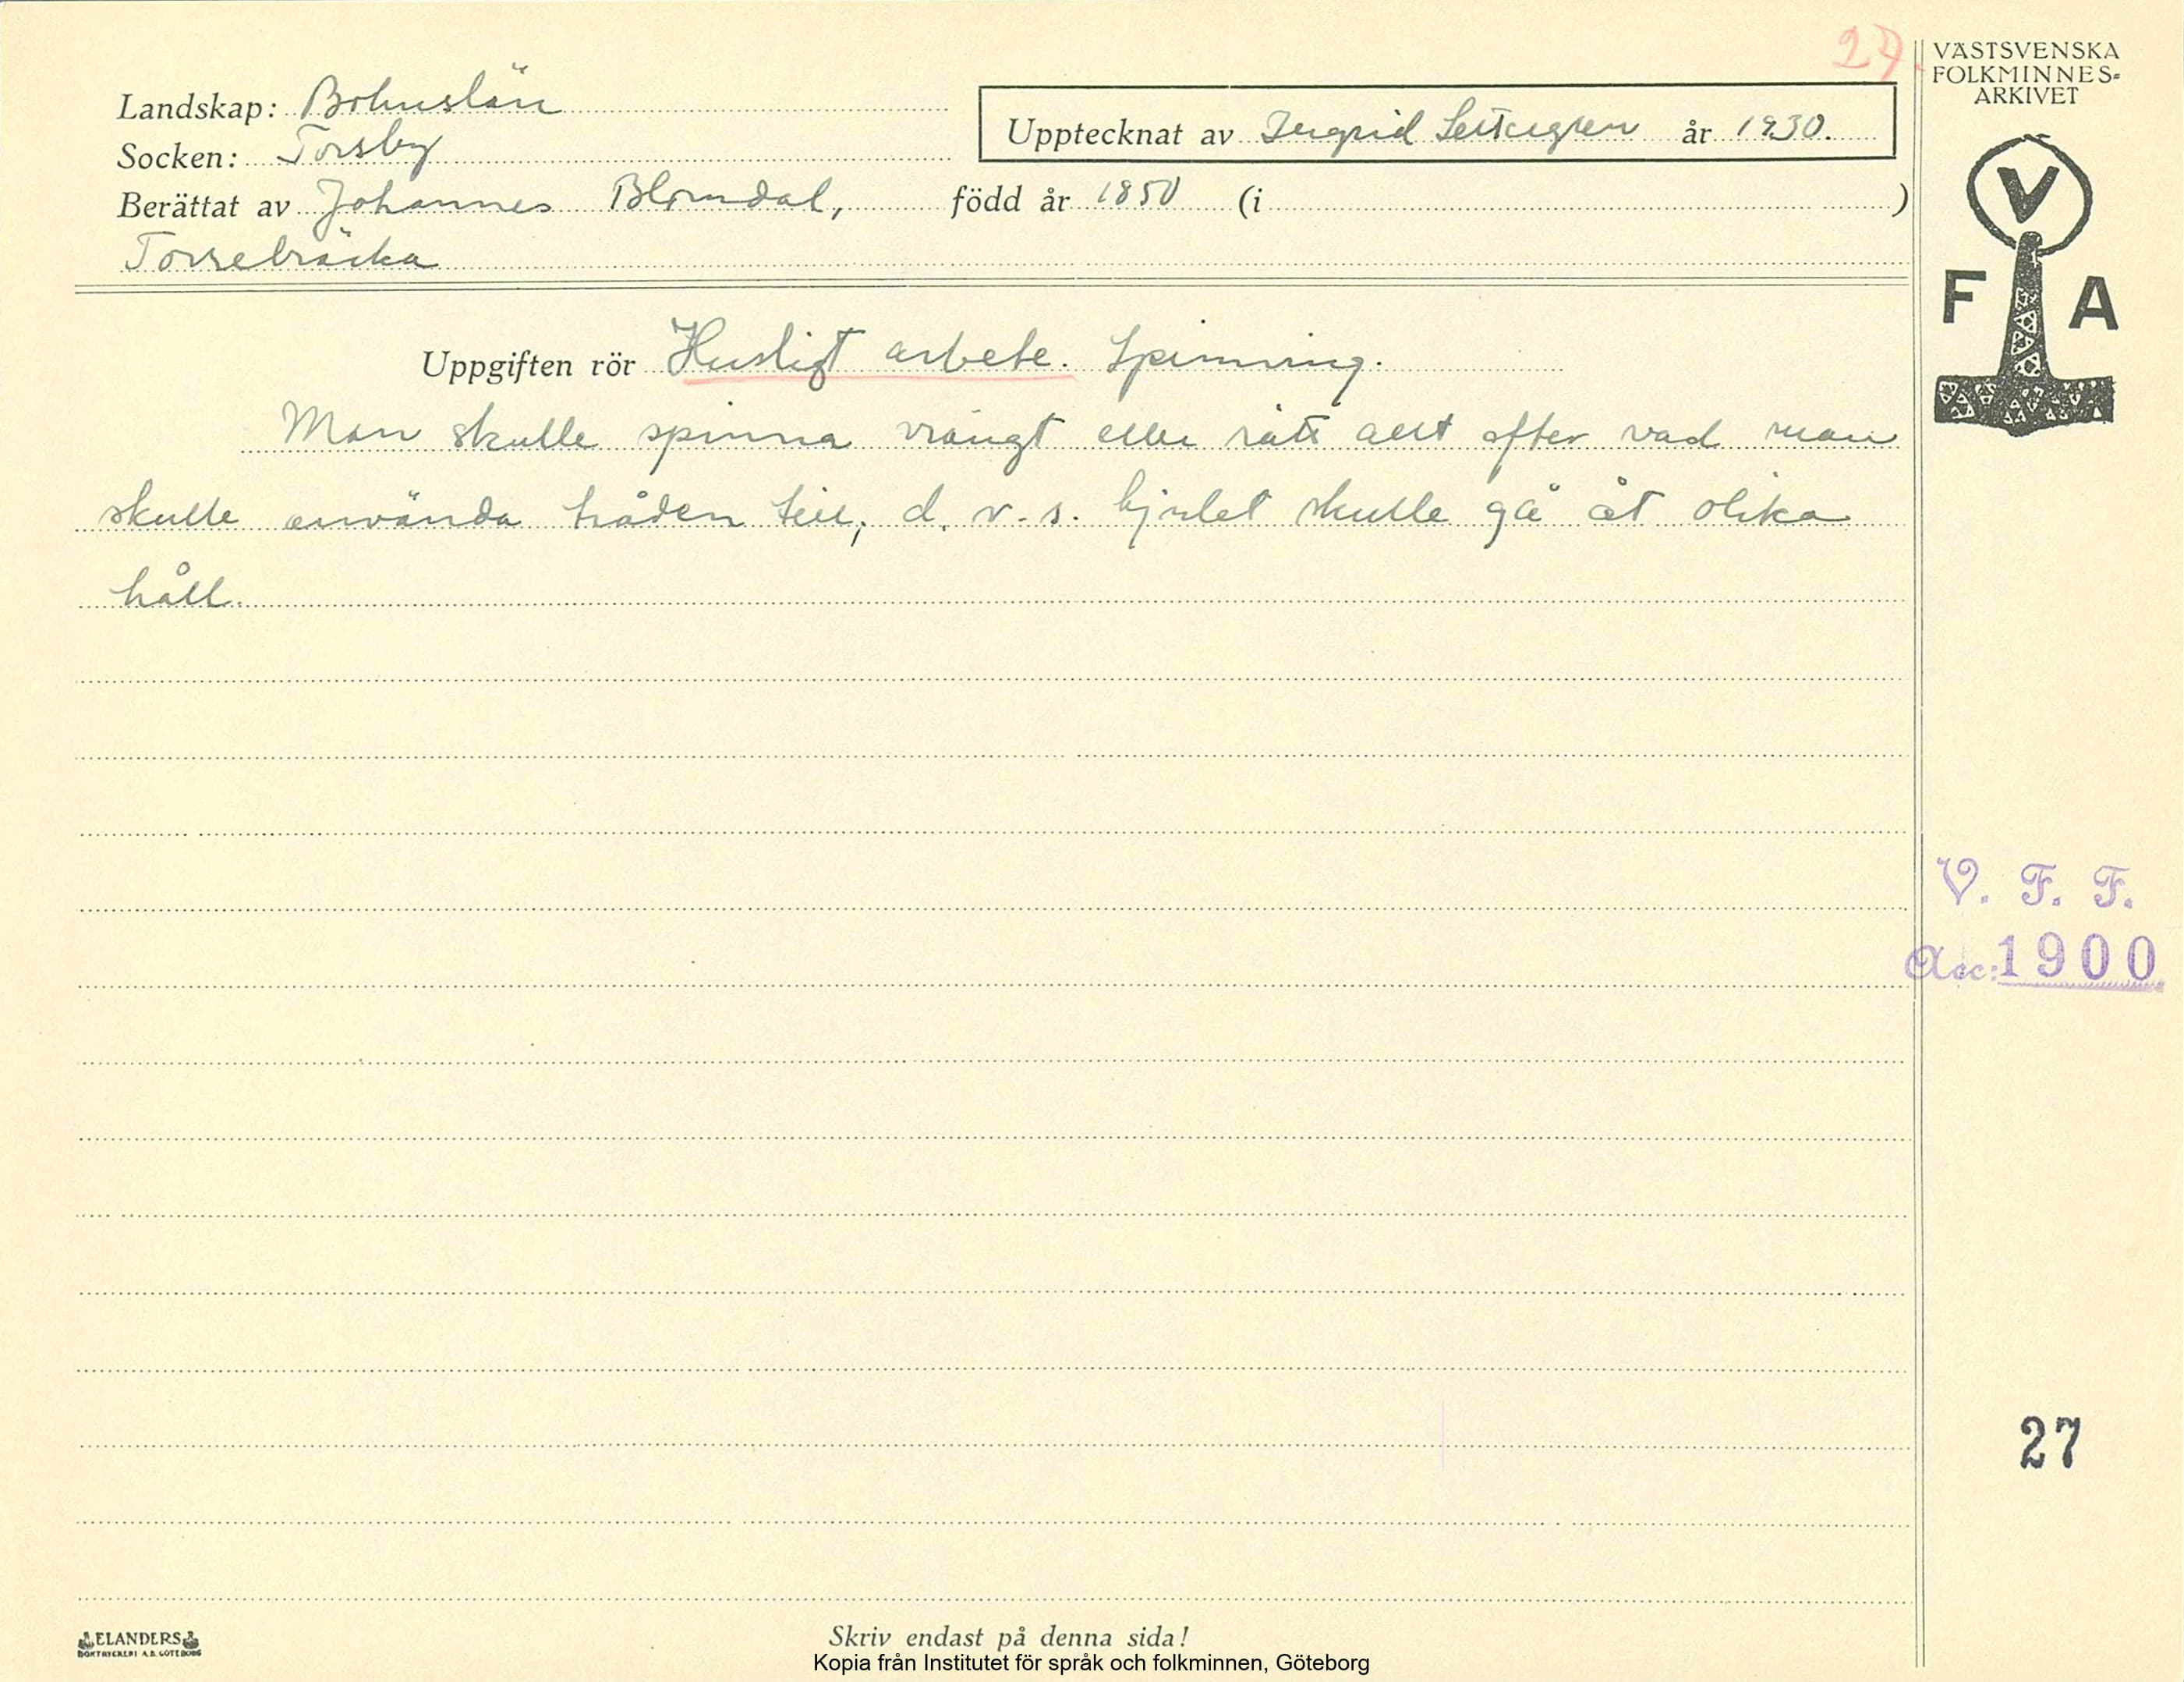 27.
VÄSTSVENSKA
FOLKMINNES-
ARKIVET
Landskap: Bohuslän
Upptecknat av Ingrid år 1930.
Socken: Torsby
Berättat av Johannes Blomdal, född år 1850 (i )
Torrebräcka
V
F A
Uppgiften rör Husligt arbete. Spinning.
Man skulle spinna vrångt eller rätt allt efter vad man
skulle använda tråden till, d. v. s. hjulet skulle gå åt olika
håll.
V. F. F.
Acc: 1900
27
ELANDERS
BOKTRYCKERI A.B. GÖTEBORG
Skriv endast på denna sida!
Kopia från Institutet för språk och folkminnen, Göteborg